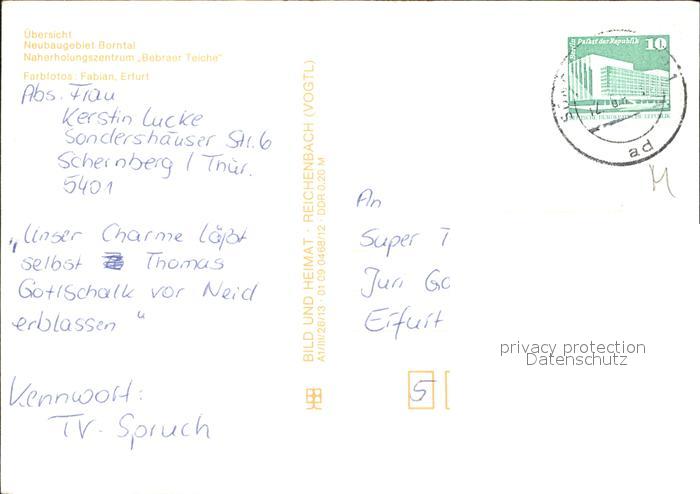 Übersicht
Neubaugebiet Borntal
Naherholungszentrum „Bebraer Teiche"
Farbfotos: Fabian, Erfurt
Abs. Frau
Kerstin Lucke
Sondershäuser Str. 6
Schernberg / Thür.
5401
„Unser Charme läßt
selbst Thomas
Gottschalk vor Neid
erblassen"
Kennwort:
TV-Spruch
BILD UND HEIMAT · REICHENBACH (VOGTL)
A1/III/26/13 · 01 09 0468/12 · DDR 0,20 M
Palast der Republik 10
DEUTSCHE DEMOKRATISCHE REPUBLIK
ad
An
Super T
Juri Go
Erfurt
5
privacy protection
Datenschutz